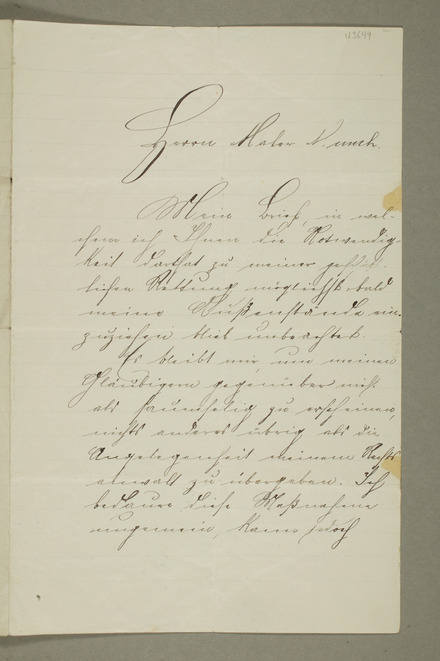 Herrn Maler Munch.
Mein Brief, in wel-
chem ich Ihnen die Notwendig-
keit darthat zu meiner geschäft-
lichen Rettung möglichst bald
meine Außenstände ein-
zuziehen blieb unbeachtet.
Es bleibt mir, um meinen
Gläubigern gegenüber nicht
als saumselig zu erscheinen,
nichts anderes übrig als die
Angelegenheit meinem Rechts
anwalt zu übergeben. Ich
bedaure diese Maßnahme
ungemein, kann jedoch